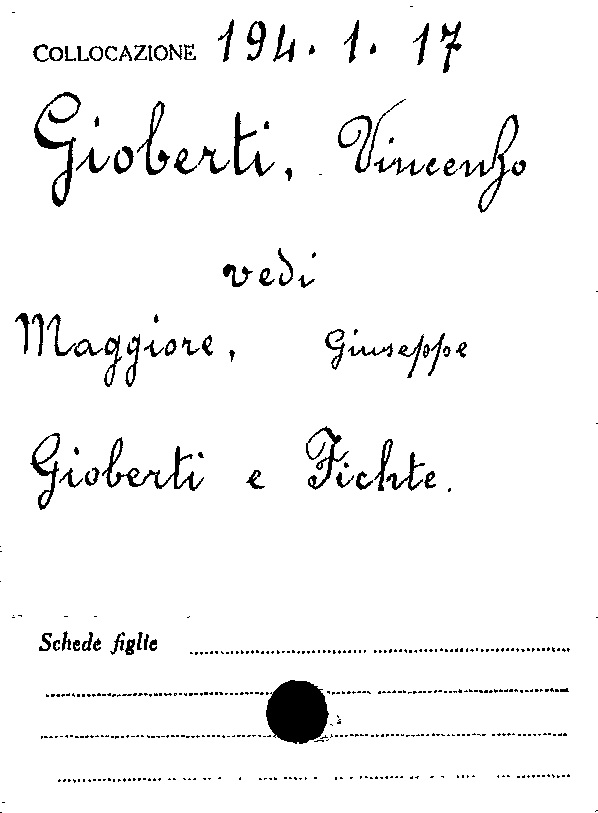 COLLOCAZIONE 194. 1. 17
Gioberti, Vincenzo
vedi
Maggiore, Giuseppe
Gioberti e Fichte.
Schede figlie